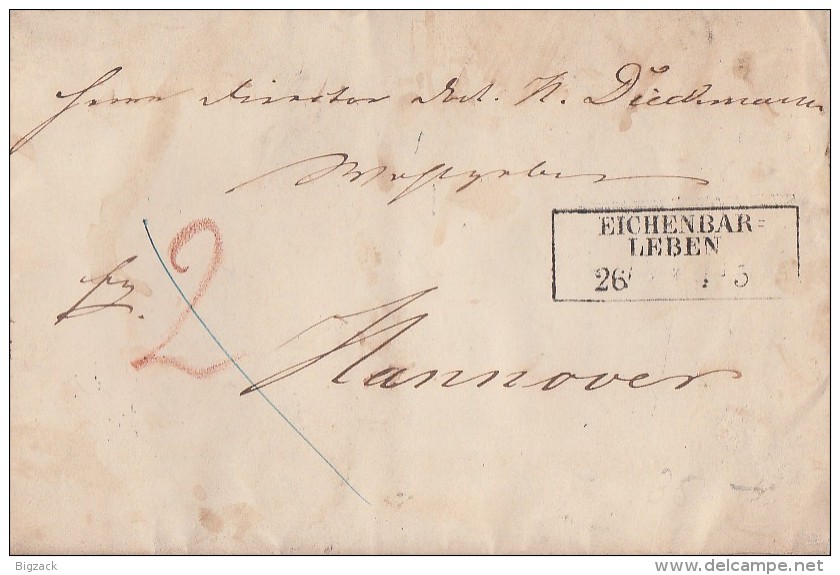 Herrn Director Dr. H. Dieckmann
Wohlgeboren
EICHENBAR=
LEBEN
26
fr.
2
Hannover
Bigzack
www.delcampe.net